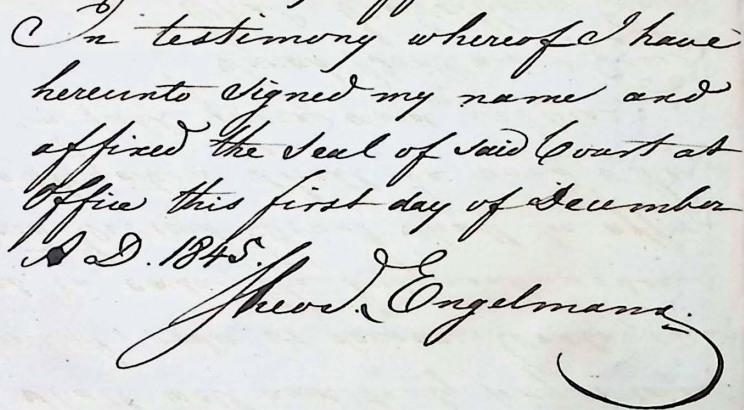 In testimony whereof I have
hereunto signed my name and
affixed the seal of said Court at
Office this first day of December
A D. 1845.
Theod. Engelmann.